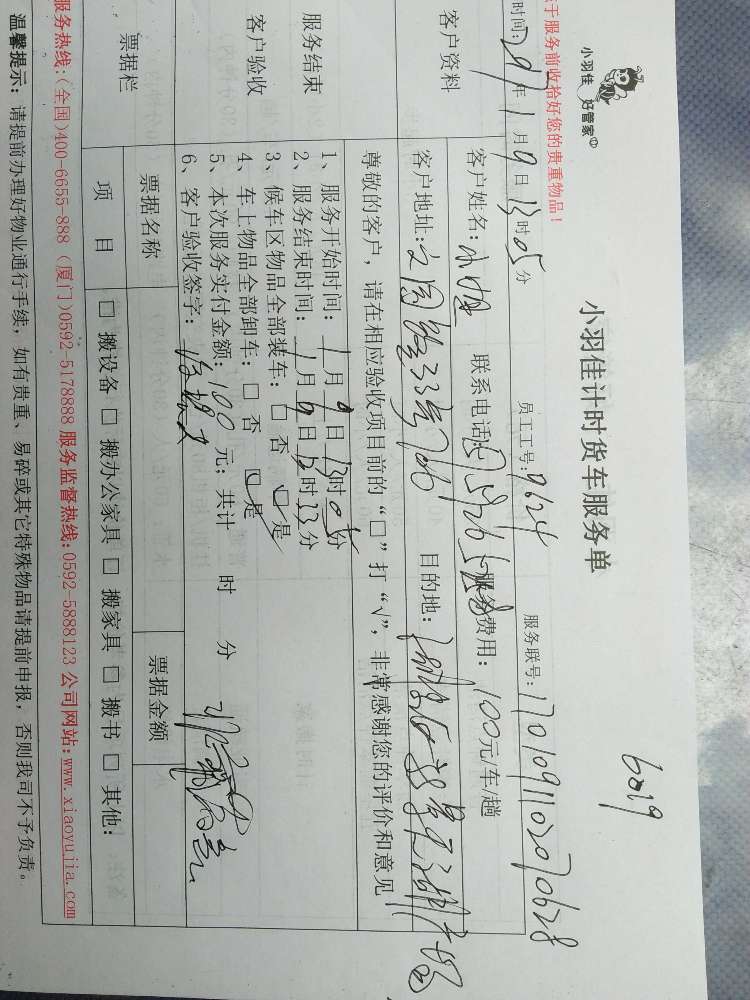 6219
小羽佳 好管家
小羽佳计时货车服务单
于服务前收拾好您的贵重物品！
时间: 2017年1月9日13时05分 员工工号: 9624 服务联号: 1701091102070628
客户资料
客户姓名: 联系电话: 服务费用: 100元/车/趟
客户地址: 目的地:
服务结束
客户验收
尊敬的客户，请在相应验收项目前的“□”打“√”，非常感谢您的评价和意见
1、服务开始时间: 1月9日13时05分
2、服务结束时间: 1月9日13时33分
3、候车区物品全部装车: □ 否 □ 是
4、车上物品全部卸车: □ 否 □ 是
5、本次服务实付金额: 100元; 共计 时 分
6、客户验收签字:
票据栏
票据名称 票据金额
项 目 □ 搬设备 □ 搬办公家具 □ 搬家具 □ 搬书 □ 其他:
服务热线:(全国)400-6655-888 (厦门)0592-5178888 服务监督热线:0592-5888123 公司网站:www.xiaoyujia.com
温馨提示: 请提前办理好物业通行手续, 如有贵重、易碎或其它特殊物品请提前申报, 否则我司不予负责。